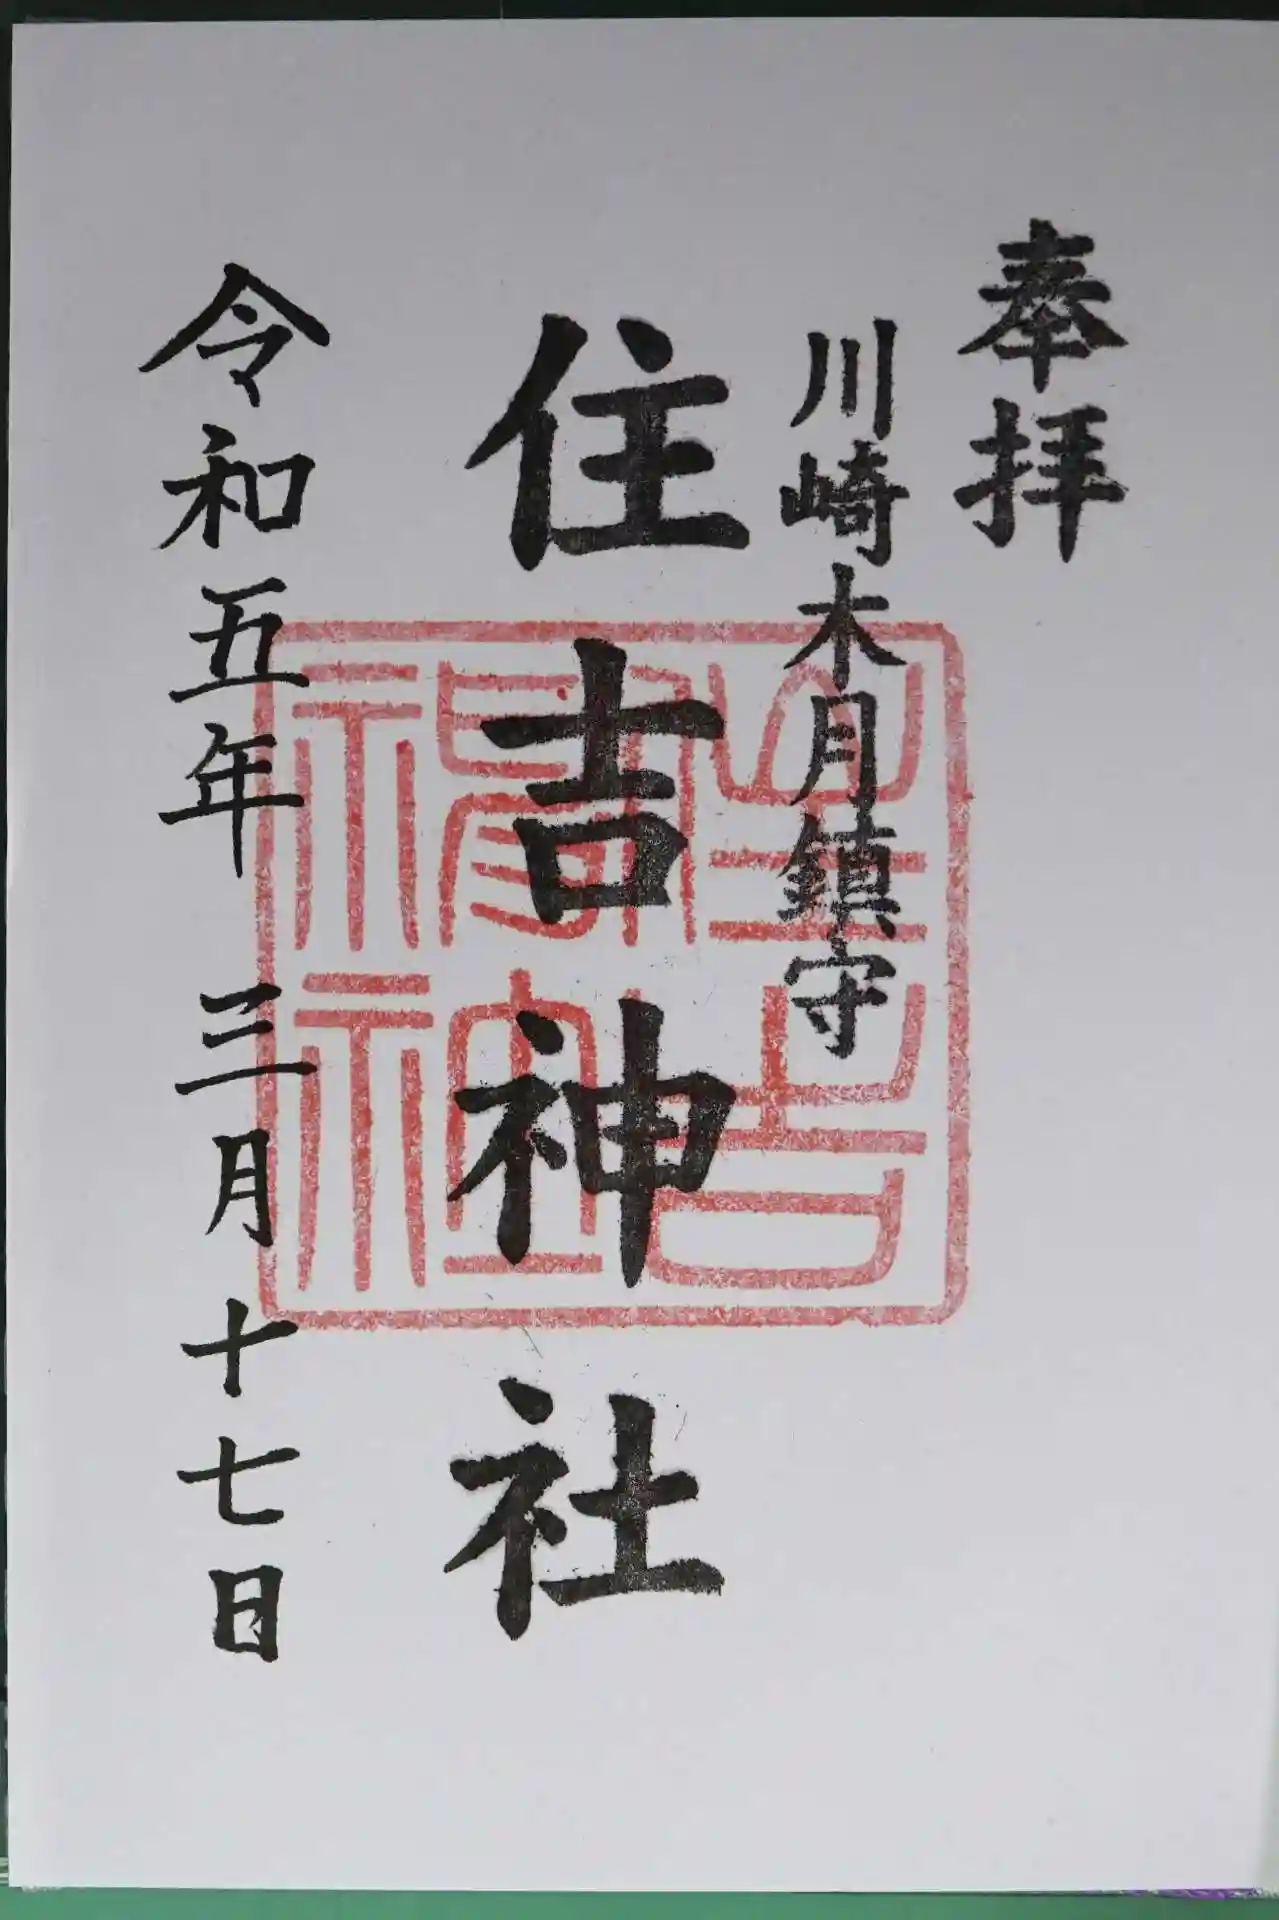 奉拝
川崎木月鎮守
住吉神社
令和五年 三月 十七日